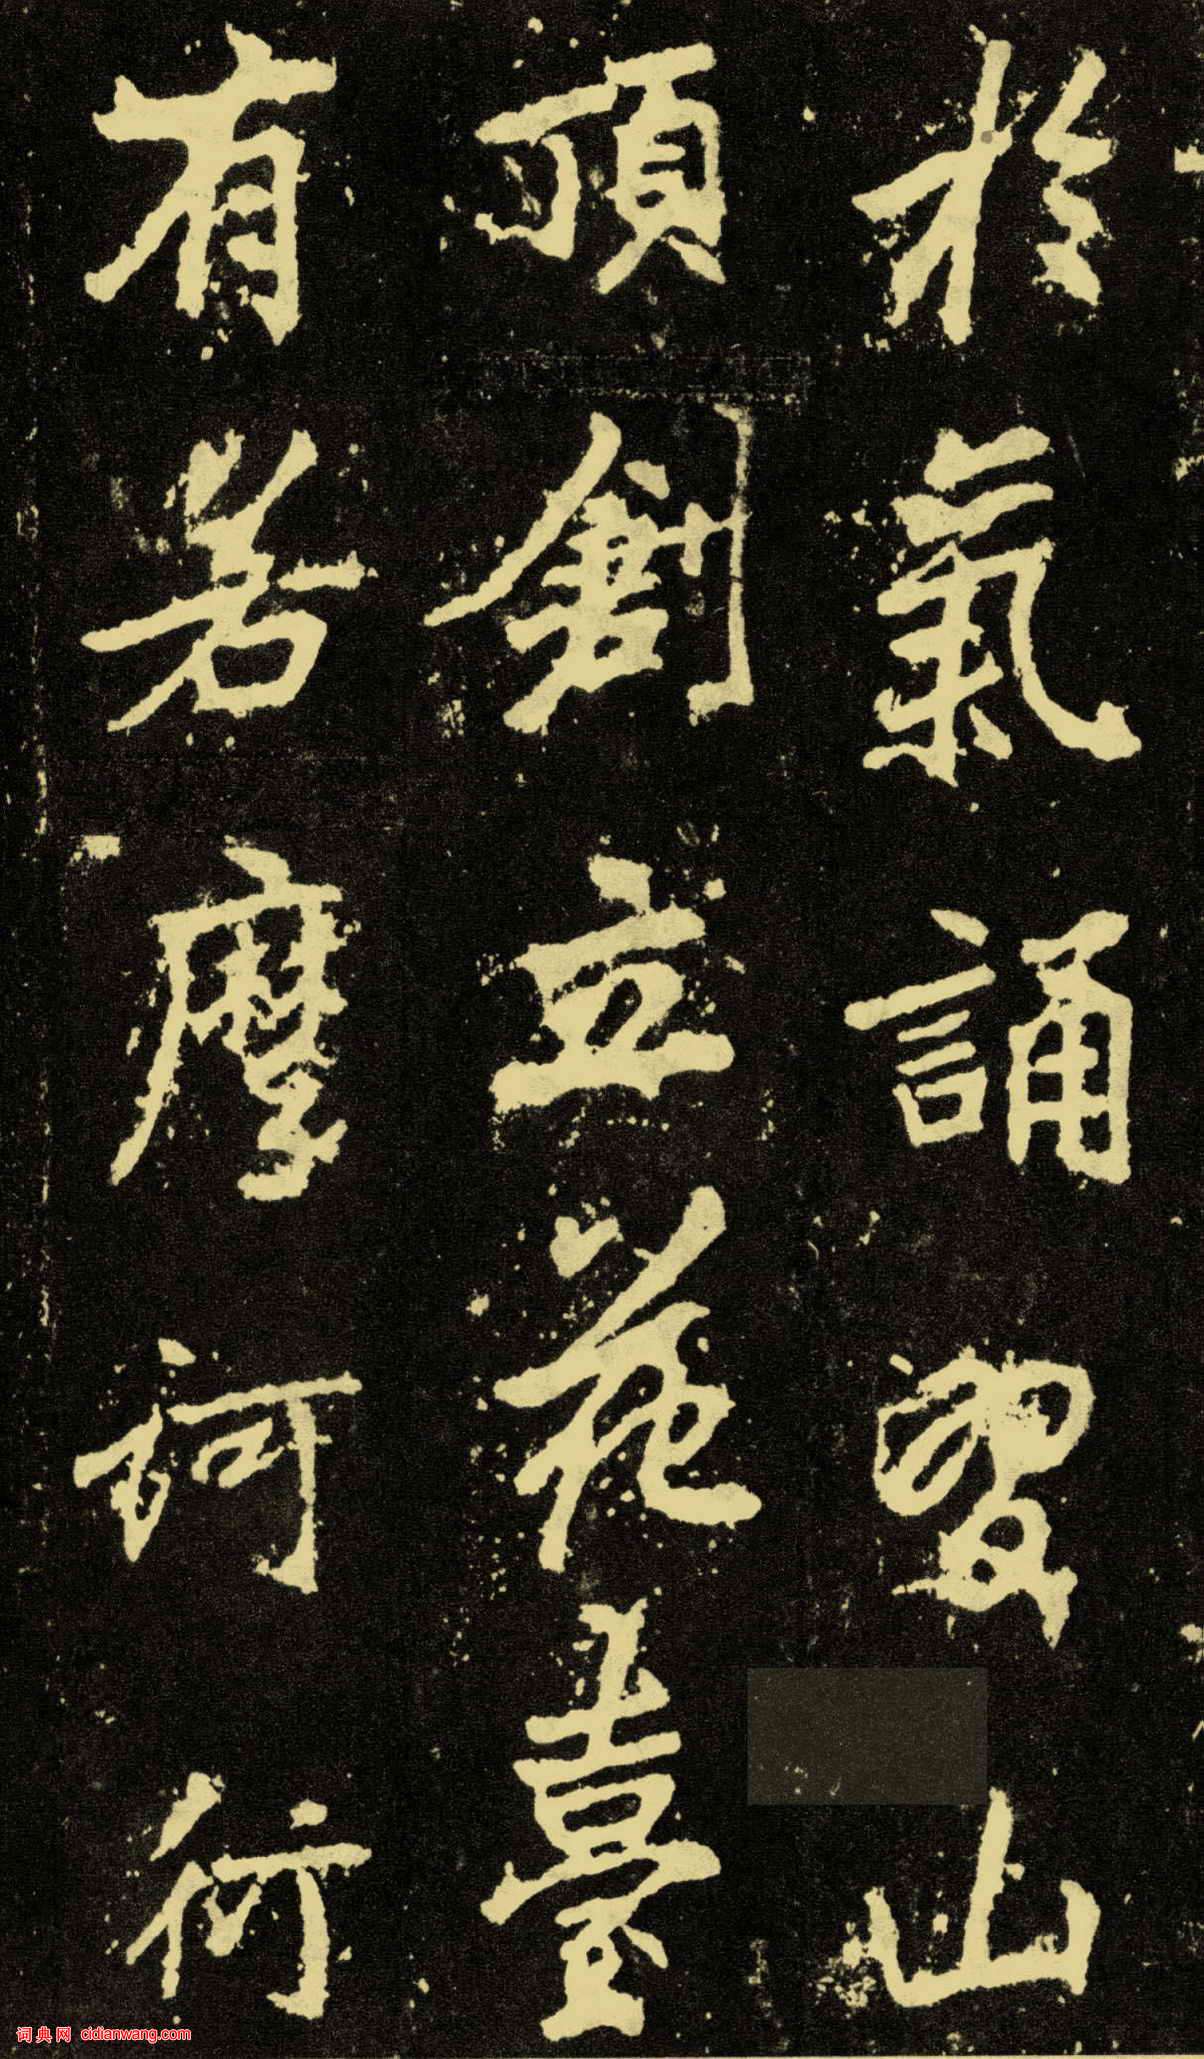 於氣誦習山
頂創立花臺
有若摩訶衍
词典网 cidianwang.com